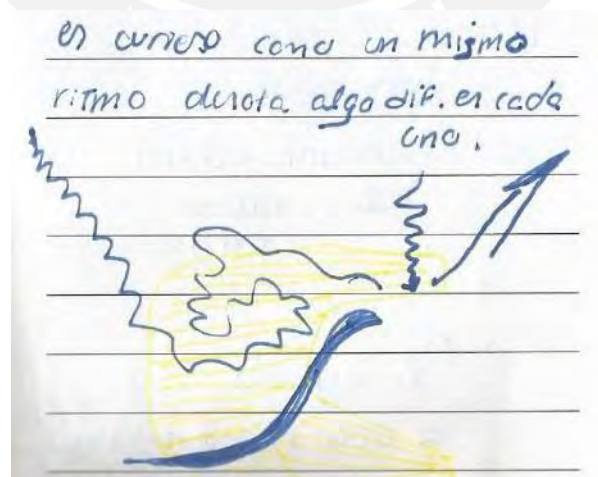 es curioso como un mismo
ritmo denota algo dif. en cada
uno.